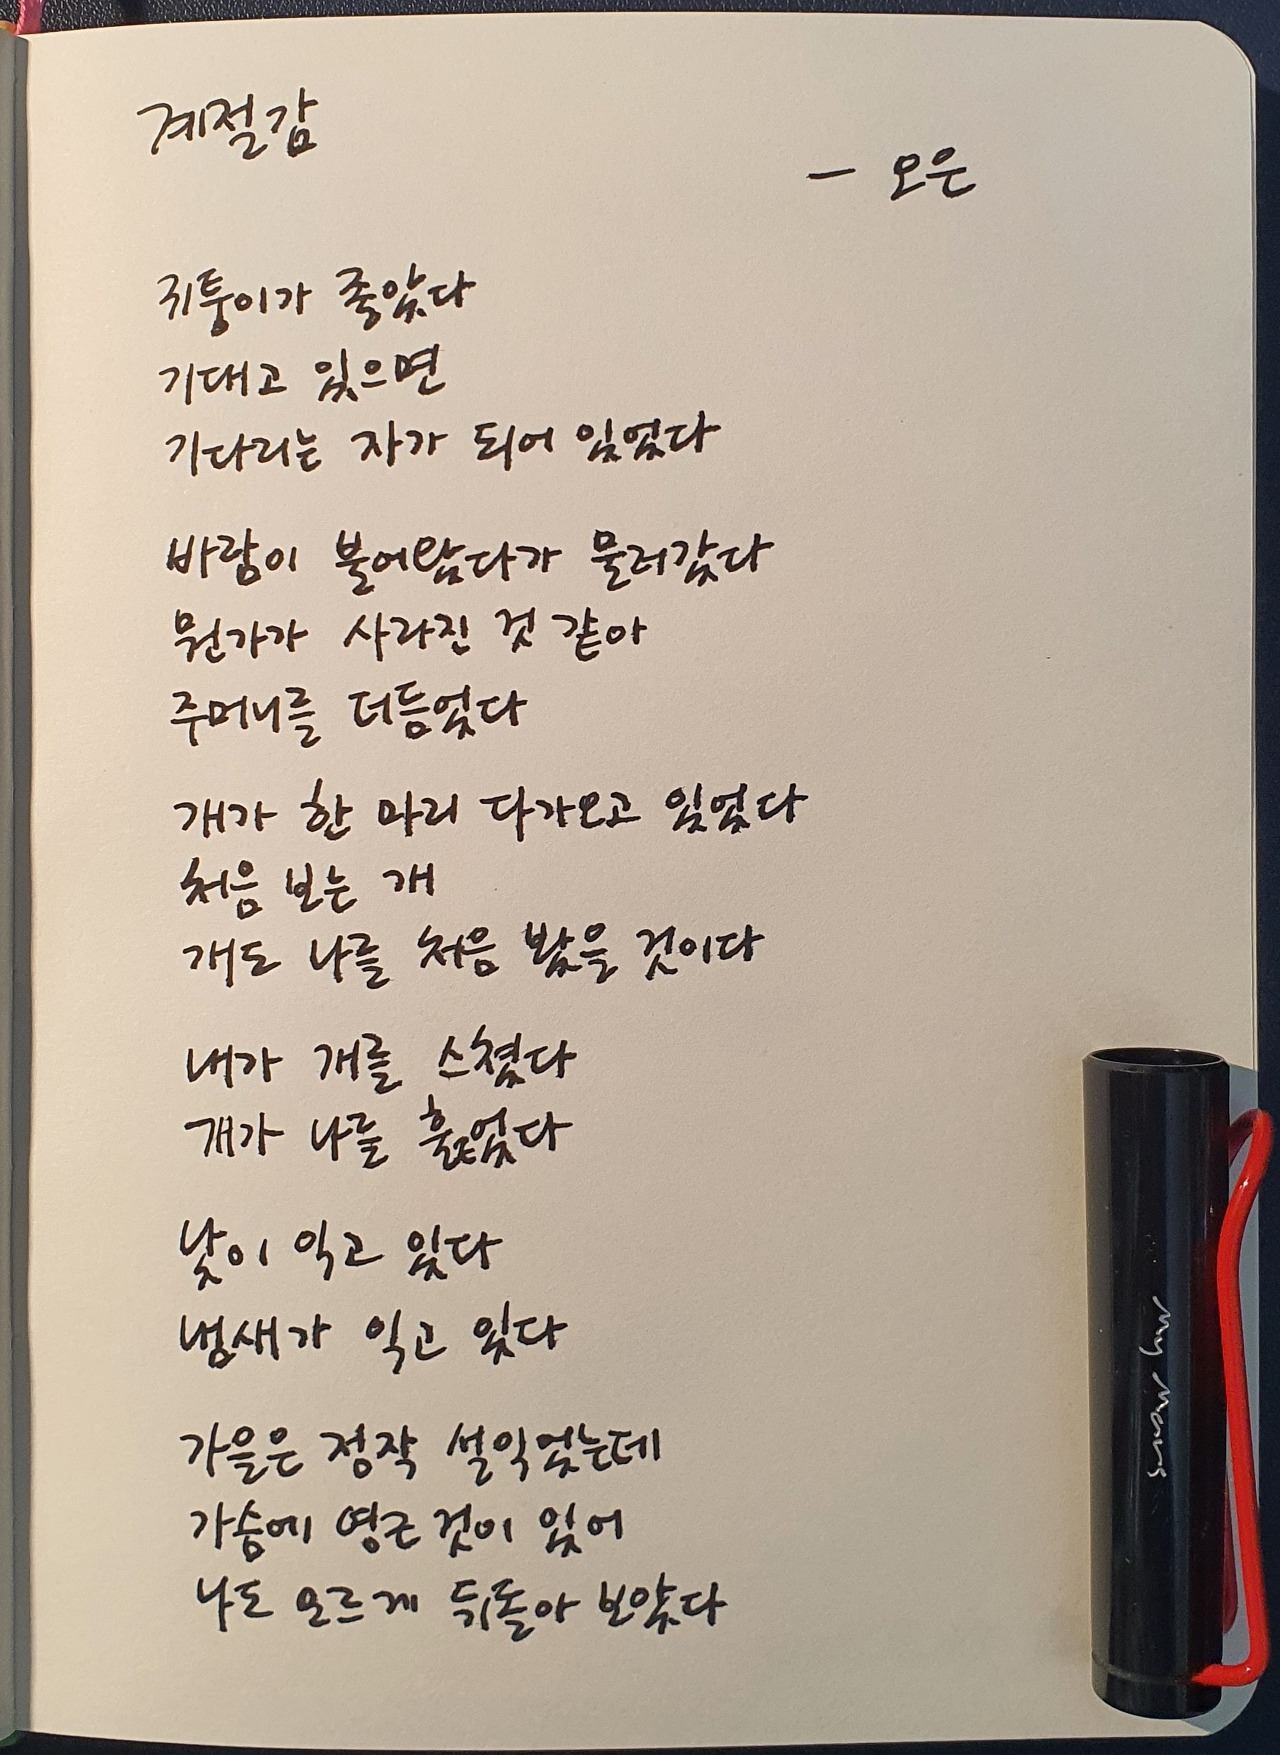 계절감
- 오은
귀퉁이가 좋았다
기대고 있으면
기다리는 자가 되어 있었다
바람이 불어왔다가 물러갔다
뭔가가 사라진 것 같아
주머니를 더듬었다
개가 한 마리 다가오고 있었다
처음 보는 개
개도 나를 처음 봤을 것이다
내가 개를 스쳤다
개가 나를 훑었다
낯이 익고 있다
냄새가 익고 있다
가을은 정작 설익었는데
가슴에 영근 것이 있어
나도 모르게 뒤돌아 보았다